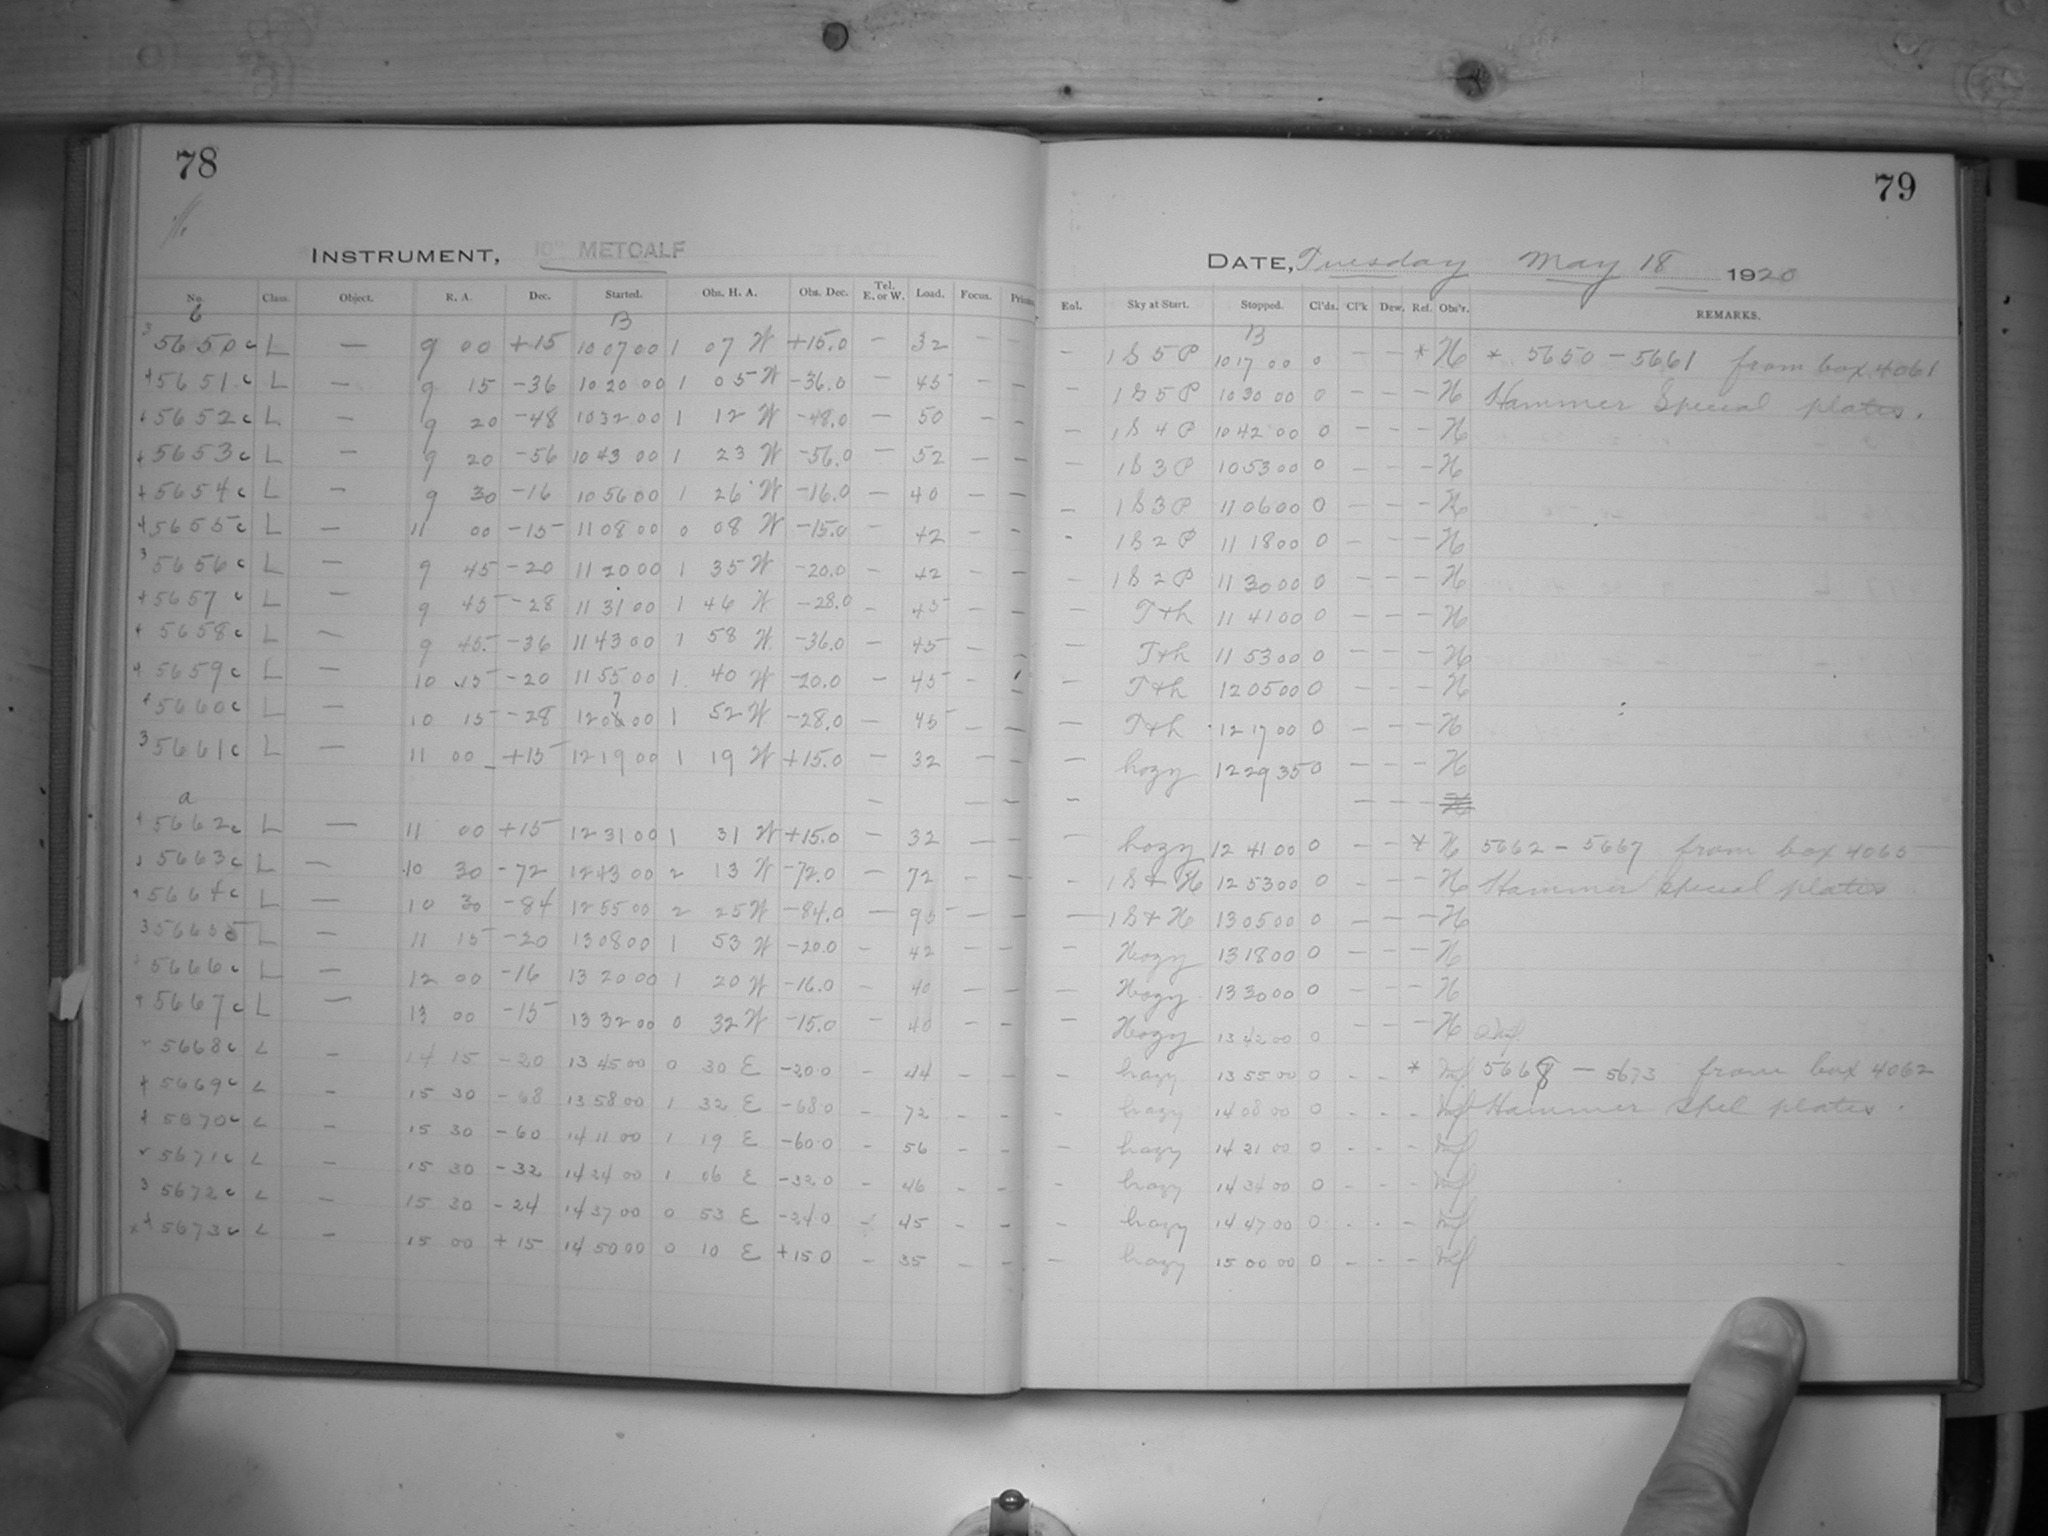 78
79
INSTRUMENT, 10" METCALF
DATE, Tuesday May 18 1920
No. Class. Object. R. A. Dec. Started. Obs. H. A. Obs. Dec. Tel. E. or W. Load. Focus.
Eol. Sky at Start. Stopped. Cl'ds. Cl'k Dew. Ref. Obs'r. REMARKS.
b B B
3 5650c L — 9 00 +15 10 07 00 1 07 W +15.0 — 32 — — — 1 S 5 P 10 17 00 0 — — * H * 5650 – 5661 from box 4061
+ 5651c L — 9 15 -36 10 20 00 1 05 W -36.0 — 45 — — — 1 S 5 P 10 30 00 0 — — — H Hammer Special plates.
+ 5652c L — 9 20 -48 10 32 00 1 12 W -48.0 — 50 — — — 1 S 4 P 10 42 00 0 — — — H
+ 5653c L — 9 20 -56 10 43 00 1 23 W -56.0 — 52 — — — 1 S 3 P 10 53 00 0 — — — H
+ 5654c L — 9 30 -16 10 56 00 1 26 W -16.0 — 40 — — — 1 S 3 P 11 06 00 0 — — — H
+ 5655c L — 11 00 -15 11 08 00 0 08 W -15.0 — 42 — — - 1 S 2 P 11 18 00 0 — — — H
3 5656c L — 9 45 -20 11 20 00 1 35 W -20.0 — 42 — — — 1 S 2 P 11 30 00 0 — — — H
+ 5657c L — 9 45 -28 11 31 00 1 46 W -28.0 — 45 — — — T & h 11 41 00 0 — — — H
+ 5658c L — 9 45 -36 11 43 00 1 58 W -36.0 — 45 — — — T & h 11 53 00 0 — — — H
+ 5659c L — 10 15 -20 11 55 00 1 40 W -20.0 — 45 — — — T & h 12 05 00 0 — — — H
+ 5660c L — 10 15 -28 12 07 00 1 52 W -28.0 — 45 — — — T & h 12 17 00 0 — — — H
3 5661c L — 11 00 +15 12 19 00 1 19 W +15.0 — 32 — — — hazy 12 29 35 0 — — — H
a — — — — — — —
+ 5662c L — 11 00 +15 12 31 00 1 31 W +15.0 — 32 — hazy 12 41 00 0 — — * H 5662 – 5667 from box 4065
5663c L — 10 30 -72 12 43 00 2 13 W -72.0 — 72 — — - 1 S & H 12 53 00 0 — — — H Hammer special plates
5664c L — 10 30 -84 12 55 00 2 25 W -84.0 — 95 — — — 1 S & H 13 05 00 0 — — — H
3 5665c L — 11 15 -20 13 08 00 1 53 W -20.0 — 42 — — — Hazy 13 18 00 0 — — — H
5666c L — 12 00 -16 13 20 00 1 20 W -16.0 — 40 — — — Hazy 13 30 00 0 — — — H
+ 5667c L — 13 00 -15 13 32 00 0 32 W -15.0 — 40 — — — Hazy 13 42 00 0 — — — H
5668c L — 14 15 -20 13 45 00 0 30 E -20.0 — 44 - - - hazy 13 55 00 0 - - * 5668 – 5673 from box 4062
+ 5669c L — 15 30 -68 13 58 00 1 32 E -68.0 — 72 - - - hazy 14 08 00 0 - - - Hammer Spcl plates.
+ 5670c L — 15 30 -60 14 11 00 1 19 E -60.0 - 56 - - - hazy 14 21 00 0 - - -
5671c L — 15 30 -32 14 24 00 1 06 E -32.0 - 46 - - - hazy 14 34 00 0 - - -
3 5672c L - 15 30 -24 14 37 00 0 53 E -24.0 - 45 - - - hazy 14 47 00 0 - - -
x + 5673c L - 15 00 +15 14 50 00 0 10 E +15.0 - 35 - - - hazy 15 00 00 0 - - -